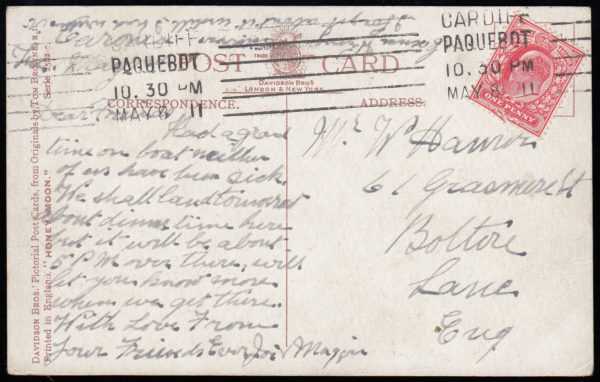 CARDIFF
PAQUEBOT
10.30 PM
MAY 8 11
CARDIFF
PAQUEBOT
10.30 PM
MAY 8 11
POST CARD
TRADE
DAVIDSON BROS
LONDON & NEW YORK
CORRESPONDENCE.
ADDRESS.
ONE PENNY
Had a grand
time on boat neither
of us have been sick.
We shall land tomorrow
bout dinner time here
but it will be about
5 PM over there, will
let you know more
when we get there.
With Love From
Your Friends Ever Joe & Maggie
Mr W
61 Grasmere St
Bolton
Lanc
Eng
DAVIDSON BROS.' Pictorial Post Cards, from Originals by TOM BROWNE, R.I.
Printed in England. "HONEYMOON." Series 2582